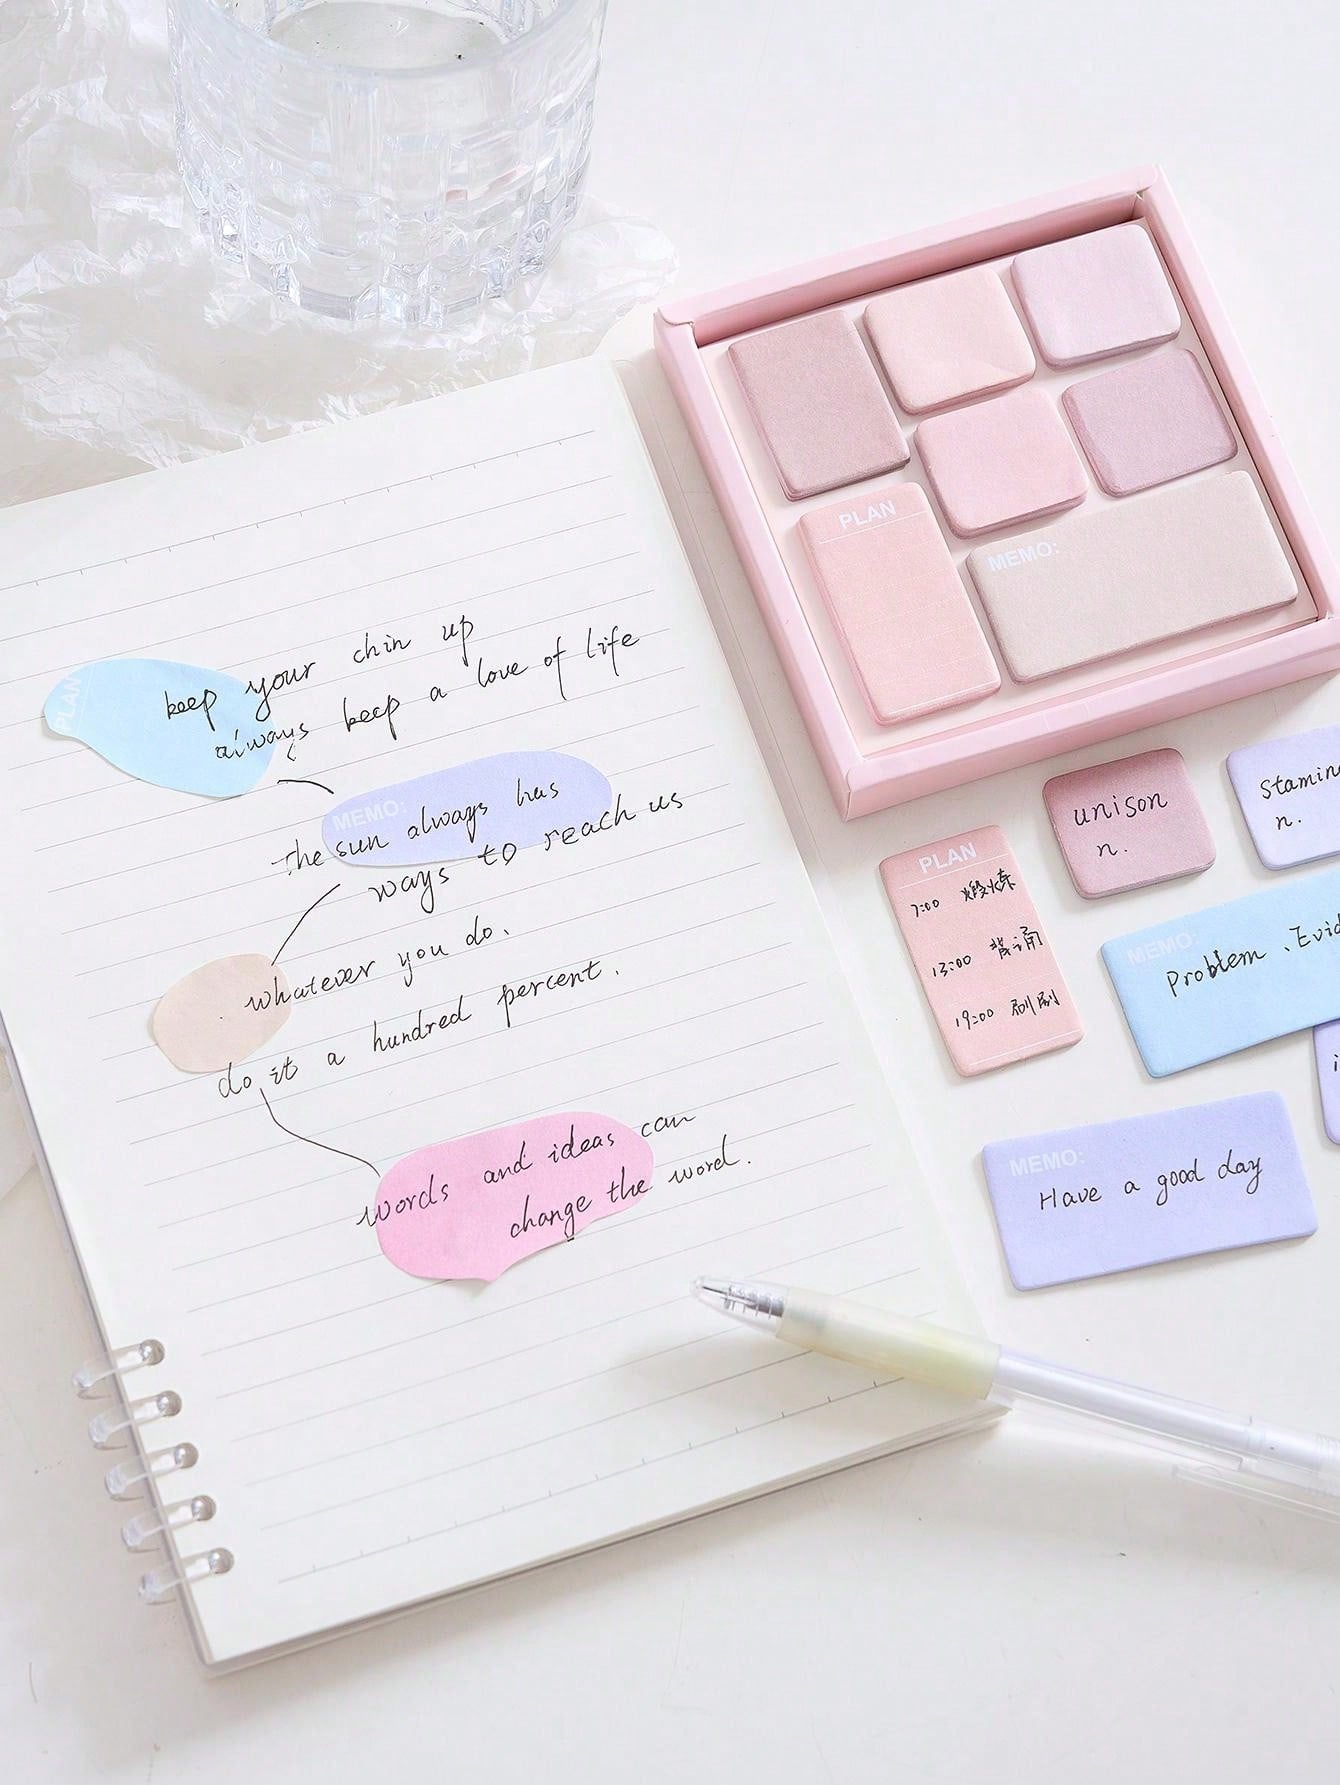 PLAN
keep your chin up
always keep a love of life
MEMO:
the sun always has
ways to reach us
whatever you do.
do it a hundred percent.
words and ideas can
change the word.
PLAN
MEMO:
unison
n.
Stamin
n.
PLAN
7:00 煅炼
13:00 背诵
19:00 刷刷
MEMO:
Problem、Evid
MEMO:
Have a good day